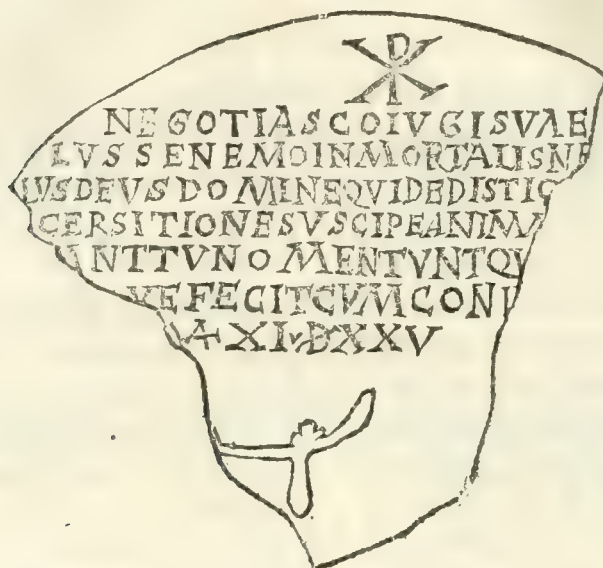 ☧
NEGOTIASCOIVGISVAE
LVSSENEMOINMORTALISNE
LUSDEVSDOMINEQVIDEDISTIC
CERSITIONESVSCIPEANIMA
ANTTVNOMENTVNTQV
VEFECITCVMCONI
XI
XXV